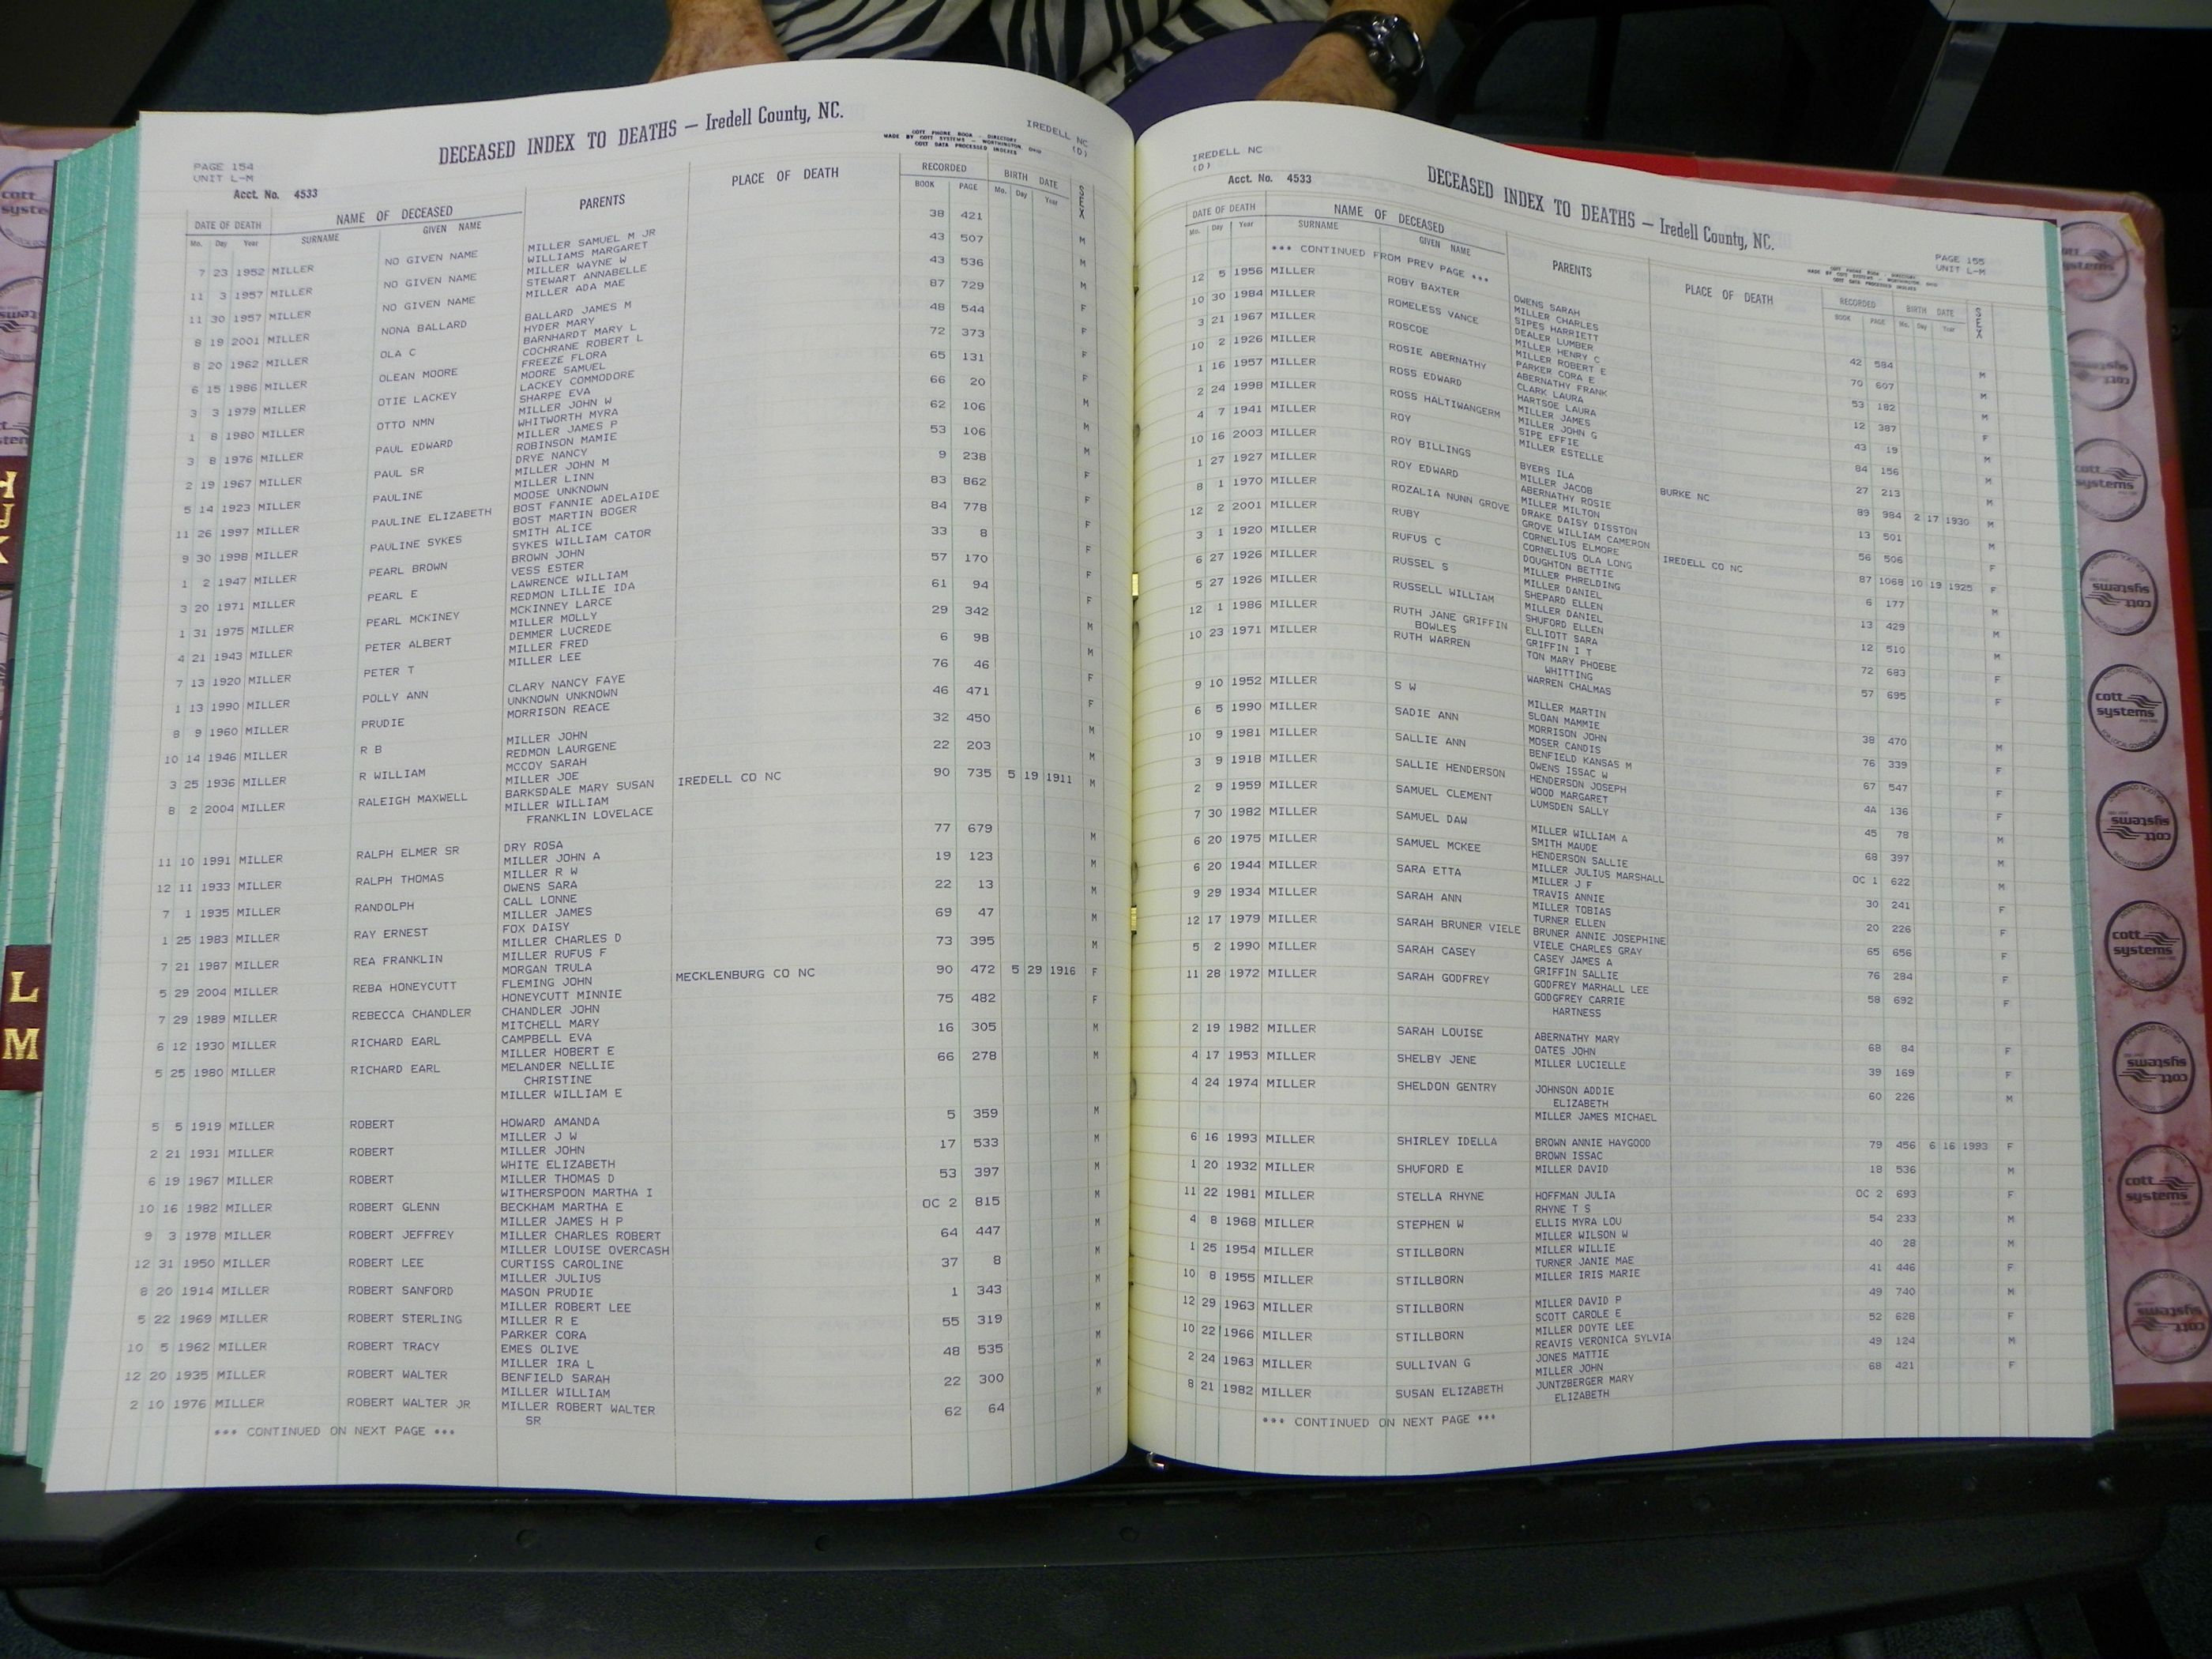 DECEASED INDEX TO DEATHS — Iredell County, NC.
COTT PHONE BOOK - DIRECTORY
MADE BY COTT SYSTEMS - WORTHINGTON, OHIO
COTT DATA PROCESSED INDEXES
IREDELL NC
(D)
PAGE 154
UNIT L-M
Acct. No. 4533
DATE OF DEATH NAME OF DECEASED PARENTS PLACE OF DEATH RECORDED BIRTH DATE SEX
Mo. Day Year SURNAME GIVEN NAME BOOK PAGE Mo. Day Year
7 23 1952 MILLER NO GIVEN NAME MILLER SAMUEL M JR 38 421 M
WILLIAMS MARGARET
11 3 1957 MILLER NO GIVEN NAME MILLER WAYNE W 43 507 M
STEWART ANNABELLE
11 30 1957 MILLER NO GIVEN NAME MILLER ADA MAE 43 536 M
8 19 2001 MILLER NONA BALLARD BALLARD JAMES M 87 729 F
HYDER MARY
8 20 1962 MILLER OLA C BARNHARDT MARY L 48 544 F
COCHRANE ROBERT L
6 15 1986 MILLER OLEAN MOORE FREEZE FLORA 72 373 F
MOORE SAMUEL
3 3 1979 MILLER OTIE LACKEY LACKEY COMMODORE 65 131 F
SHARPE EVA
1 8 1980 MILLER OTTO NMN MILLER JOHN W 66 20 M
WHITWORTH MYRA
3 8 1976 MILLER PAUL EDWARD MILLER JAMES P 62 106 M
ROBINSON MAMIE
2 19 1967 MILLER PAUL SR DRYE NANCY 53 106 M
MILLER JOHN M
5 14 1923 MILLER PAULINE MILLER LINN 9 238 F
MOOSE UNKNOWN
11 26 1997 MILLER PAULINE ELIZABETH BOST FANNIE ADELAIDE 83 862 F
BOST MARTIN BOGER
9 30 1998 MILLER PAULINE SYKES SMITH ALICE 84 778 F
SYKES WILLIAM CATOR
1 2 1947 MILLER PEARL BROWN BROWN JOHN 33 8 F
VESS ESTER
3 20 1971 MILLER PEARL E LAWRENCE WILLIAM 57 170 F
REDMON LILLIE IDA
1 31 1975 MILLER PEARL MCKINEY MCKINNEY LARCE 61 94 F
MILLER MOLLY
4 21 1943 MILLER PETER ALBERT DEMMER LUCREDE 29 342 M
MILLER FRED
7 13 1920 MILLER PETER T MILLER LEE 6 98 M
1 13 1990 MILLER POLLY ANN CLARY NANCY FAYE 76 46 F
UNKNOWN UNKNOWN
8 9 1960 MILLER PRUDIE MORRISON REACE 46 471 F
10 14 1946 MILLER R B MILLER JOHN 32 450 M
REDMON LAURGENE
3 25 1936 MILLER R WILLIAM MCCOY SARAH 22 203 M
MILLER JOE
8 2 2004 MILLER RALEIGH MAXWELL BARKSDALE MARY SUSAN IREDELL CO NC 90 735 5 19 1911 M
MILLER WILLIAM
FRANKLIN LOVELACE
11 10 1991 MILLER RALPH ELMER SR DRY ROSA 77 679 M
MILLER JOHN A
12 11 1933 MILLER RALPH THOMAS MILLER R W 19 123 M
OWENS SARA
7 1 1935 MILLER RANDOLPH CALL LONNE 22 13 M
MILLER JAMES
1 25 1983 MILLER RAY ERNEST FOX DAISY 69 47 M
MILLER CHARLES D
7 21 1987 MILLER REA FRANKLIN MILLER RUFUS F 73 395 M
MORGAN TRULA
5 29 2004 MILLER REBA HONEYCUTT FLEMING JOHN MECKLENBURG CO NC 90 472 5 29 1916 F
HONEYCUTT MINNIE
7 29 1989 MILLER REBECCA CHANDLER CHANDLER JOHN 75 482 F
MITCHELL MARY
6 12 1930 MILLER RICHARD EARL CAMPBELL EVA 16 305 M
MILLER HOBERT E
5 25 1980 MILLER RICHARD EARL MELANDER NELLIE 66 278 M
CHRISTINE
MILLER WILLIAM E
5 5 1919 MILLER ROBERT HOWARD AMANDA 5 359 M
MILLER J W
2 21 1931 MILLER ROBERT MILLER JOHN 17 533 M
WHITE ELIZABETH
6 19 1967 MILLER ROBERT MILLER THOMAS D 53 397 M
WITHERSPOON MARTHA I
10 16 1982 MILLER ROBERT GLENN BECKHAM MARTHA E OC 2 815 M
MILLER JAMES H P
9 3 1978 MILLER ROBERT JEFFREY MILLER CHARLES ROBERT 64 447 M
MILLER LOUISE OVERCASH
12 31 1950 MILLER ROBERT LEE CURTISS CAROLINE 37 8 M
MILLER JULIUS
8 20 1914 MILLER ROBERT SANFORD MASON PRUDIE 1 343 M
MILLER ROBERT LEE
5 22 1969 MILLER ROBERT STERLING MILLER R E 55 319 M
PARKER CORA
10 5 1962 MILLER ROBERT TRACY EMES OLIVE 48 535 M
MILLER IRA L
12 20 1935 MILLER ROBERT WALTER BENFIELD SARAH 22 300 M
MILLER WILLIAM
2 10 1976 MILLER ROBERT WALTER JR MILLER ROBERT WALTER 62 64 M
SR
*** CONTINUED ON NEXT PAGE ***
IREDELL NC
(D)
Acct. No. 4533
DECEASED INDEX TO DEATHS — Iredell County, NC.
COTT PHONE BOOK - DIRECTORY
MADE BY COTT SYSTEMS - WORTHINGTON, OHIO
COTT DATA PROCESSED INDEXES
PAGE 155
UNIT L-M
DATE OF DEATH NAME OF DECEASED PARENTS PLACE OF DEATH RECORDED BIRTH DATE SEX
Mo. Day Year SURNAME GIVEN NAME BOOK PAGE Mo. Day Year
*** CONTINUED FROM PREV PAGE ***
OWENS SARAH
12 5 1956 MILLER ROBY BAXTER MILLER CHARLES 42 584 M
SIPES HARRIETT
10 30 1984 MILLER ROMELESS VANCE DEALER LUMBER 70 607 M
MILLER HENRY C
3 21 1967 MILLER ROSCOE MILLER ROBERT E 53 182 M
PARKER CORA E
10 2 1926 MILLER ROSIE ABERNATHY ABERNATHY FRANK 12 387 F
CLARK LAURA
1 16 1957 MILLER ROSS EDWARD HARTSOE LAURA 43 19 M
MILLER JAMES
2 24 1998 MILLER ROSS HALTIWANGERM MILLER JOHN G 84 156 M
SIPE EFFIE
4 7 1941 MILLER ROY MILLER ESTELLE 27 213 M
10 16 2003 MILLER ROY BILLINGS BYERS ILA BURKE NC 89 984 2 17 1930 M
MILLER JACOB
1 27 1927 MILLER ROY EDWARD ABERNATHY ROSIE 13 501 M
MILLER MILTON
8 1 1970 MILLER ROZALIA NUNN GROVE DRAKE DAISY DISSTON 56 506 F
GROVE WILLIAM CAMERON
12 2 2001 MILLER RUBY CORNELIUS ELMORE IREDELL CO NC 87 1068 10 19 1925 F
CORNELIUS OLA LONG
3 1 1920 MILLER RUFUS C DOUGHTON BETTIE 6 177 M
MILLER PHRELDING
6 27 1926 MILLER RUSSEL S MILLER DANIEL 13 429 M
SHEPARD ELLEN
5 27 1926 MILLER RUSSELL WILLIAM MILLER DANIEL 12 510 M
SHUFORD ELLEN
12 1 1986 MILLER RUTH JANE GRIFFIN ELLIOTT SARA 72 683 F
BOWLES GRIFFIN I T
10 23 1971 MILLER RUTH WARREN TON MARY PHOEBE 57 695 F
WHITTING
WARREN CHALMAS
9 10 1952 MILLER S W MILLER MARTIN 38 470 M
SLOAN MAMMIE
6 5 1990 MILLER SADIE ANN MORRISON JOHN 76 339 F
MOSER CANDIS
10 9 1981 MILLER SALLIE ANN BENFIELD KANSAS M 67 547 F
OWENS ISSAC W
3 9 1918 MILLER SALLIE HENDERSON HENDERSON JOSEPH 4A 136 F
WOOD MARGARET
2 9 1959 MILLER SAMUEL CLEMENT LUMSDEN SALLY 45 78 M
7 30 1982 MILLER SAMUEL DAW MILLER WILLIAM A 68 397 M
SMITH MAUDE
6 20 1975 MILLER SAMUEL MCKEE HENDERSON SALLIE OC 1 622 M
MILLER JULIUS MARSHALL
6 20 1944 MILLER SARA ETTA MILLER J F 30 241 F
TRAVIS ANNIE
9 29 1934 MILLER SARAH ANN MILLER TOBIAS 20 226 F
TURNER ELLEN
12 17 1979 MILLER SARAH BRUNER VIELE BRUNER ANNIE JOSEPHINE 65 656 F
VIELE CHARLES GRAY
5 2 1990 MILLER SARAH CASEY CASEY JAMES A 76 284 F
GRIFFIN SALLIE
11 28 1972 MILLER SARAH GODFREY GODFREY MARHALL LEE 58 692 F
GODGFREY CARRIE
HARTNESS
2 19 1982 MILLER SARAH LOUISE ABERNATHY MARY 68 84 F
OATES JOHN
4 17 1953 MILLER SHELBY JENE MILLER LUCIELLE 39 169 F
4 24 1974 MILLER SHELDON GENTRY JOHNSON ADDIE 60 226 M
ELIZABETH
MILLER JAMES MICHAEL
6 16 1993 MILLER SHIRLEY IDELLA BROWN ANNIE HAYGOOD 79 456 6 16 1993 F
BROWN ISSAC
1 20 1932 MILLER SHUFORD E MILLER DAVID 18 536 M
11 22 1981 MILLER STELLA RHYNE HOFFMAN JULIA OC 2 693 F
RHYNE T S
4 8 1968 MILLER STEPHEN W ELLIS MYRA LOU 54 233 M
MILLER WILSON W
1 25 1954 MILLER STILLBORN MILLER WILLIE 40 28 M
TURNER JANIE MAE
10 8 1955 MILLER STILLBORN MILLER IRIS MARIE 41 446 F
12 29 1963 MILLER STILLBORN MILLER DAVID P 49 740 M
SCOTT CAROLE E
10 22 1966 MILLER STILLBORN MILLER DOYTE LEE 52 628 F
REAVIS VERONICA SYLVIA
2 24 1963 MILLER SULLIVAN G JONES MATTIE 49 124 M
MILLER JOHN
8 21 1982 MILLER SUSAN ELIZABETH JUNTZBERGER MARY 68 421 F
ELIZABETH
*** CONTINUED ON NEXT PAGE ***
L
M
cott
systems